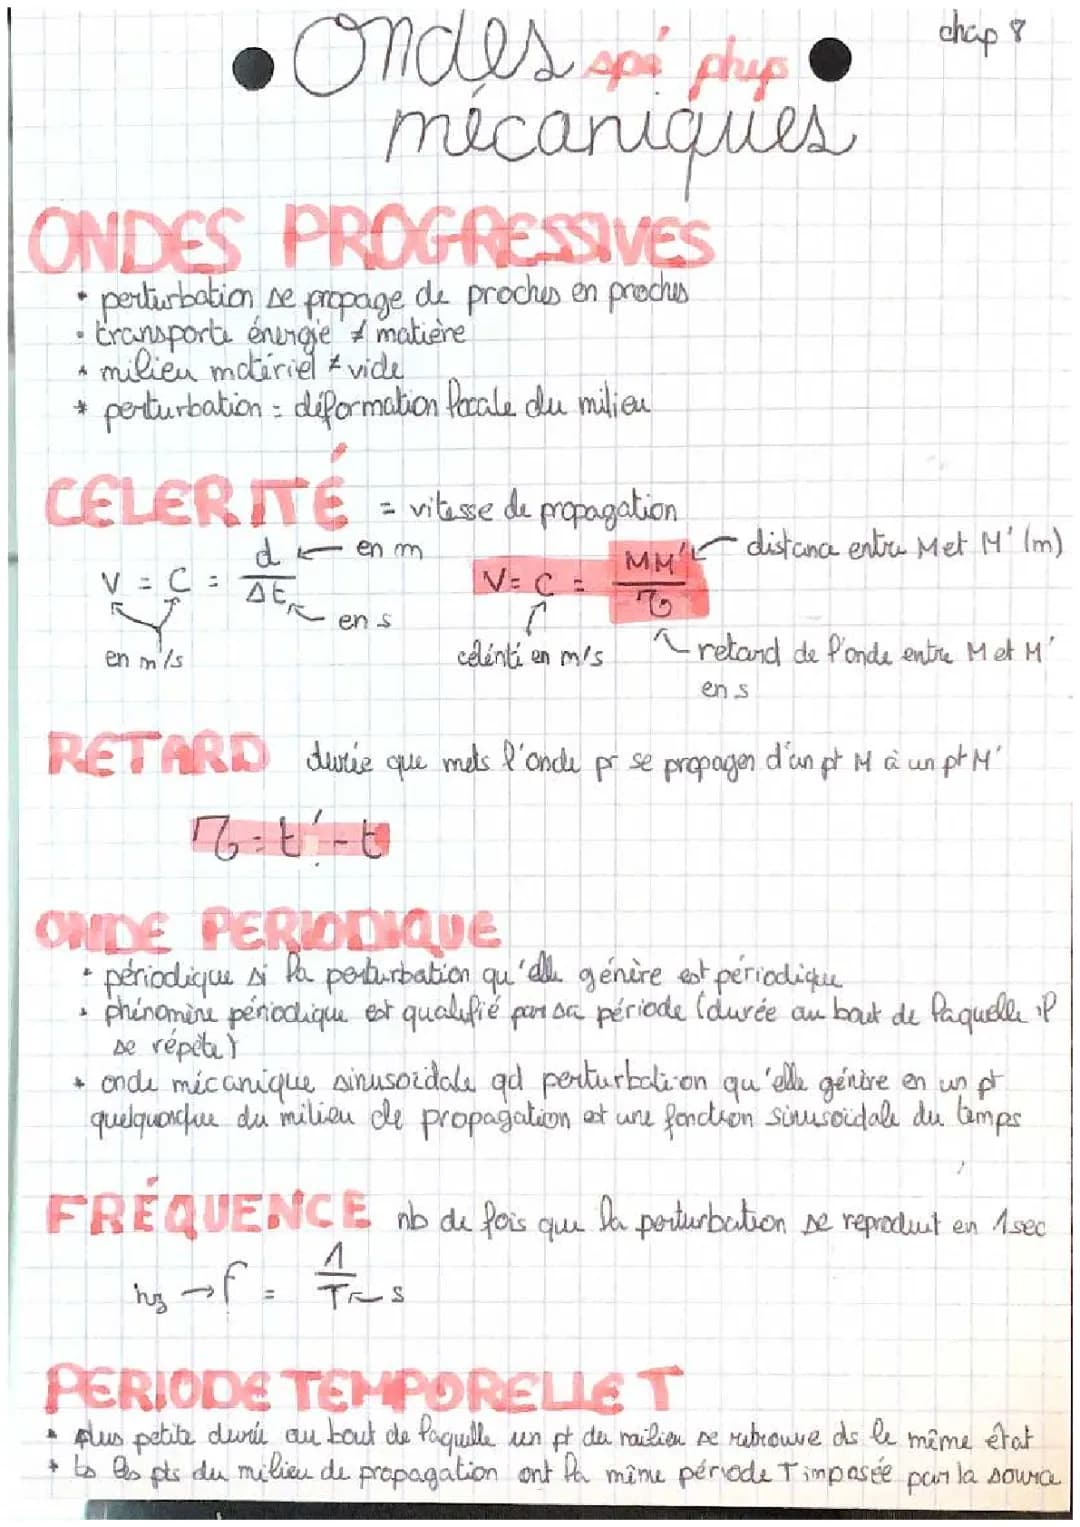 chap 8
• Ondes spé phys •
mécaniques
ONDES PROGRESSIVES
• perturbation se propage de proches en proches
• transporte énergie ≠ matière
* milieu matériel ≠ vide
* perturbation = déformation locale du milieu
CELERITÉ = vitesse de propagation
V = C = d/Δt
d ← en m
Δt ← en s
en m/s
V = C = MM'/τ
← distance entre M et M' (m)
célérité en m/s
retard de l'onde entre M et M'
en s
RETARD durée que mets l'onde pr se propager d'un pt M à un pt M'
τ = t' - t
ONDE PERIODIQUE
• périodique si la perturbation qu'elle génère est périodique
• phénomène périodique est qualifié par sa période (durée au bout de laquelle il
se répète)
* onde mécanique sinusoïdale qd perturbation qu'elle génère en un pt
quelquonque du milieu de propagation est une fonction sinusoïdale du temps
FRÉQUENCE nb de fois que la perturbation se reproduit en 1sec
hz → f = 1/T ← s
PERIODE TEMPORELLE T
• plus petite durée au bout de laquelle un pt du milieu se retrouve ds le même état
* ts les pts du milieu de propagation ont la même période T imposée par la source